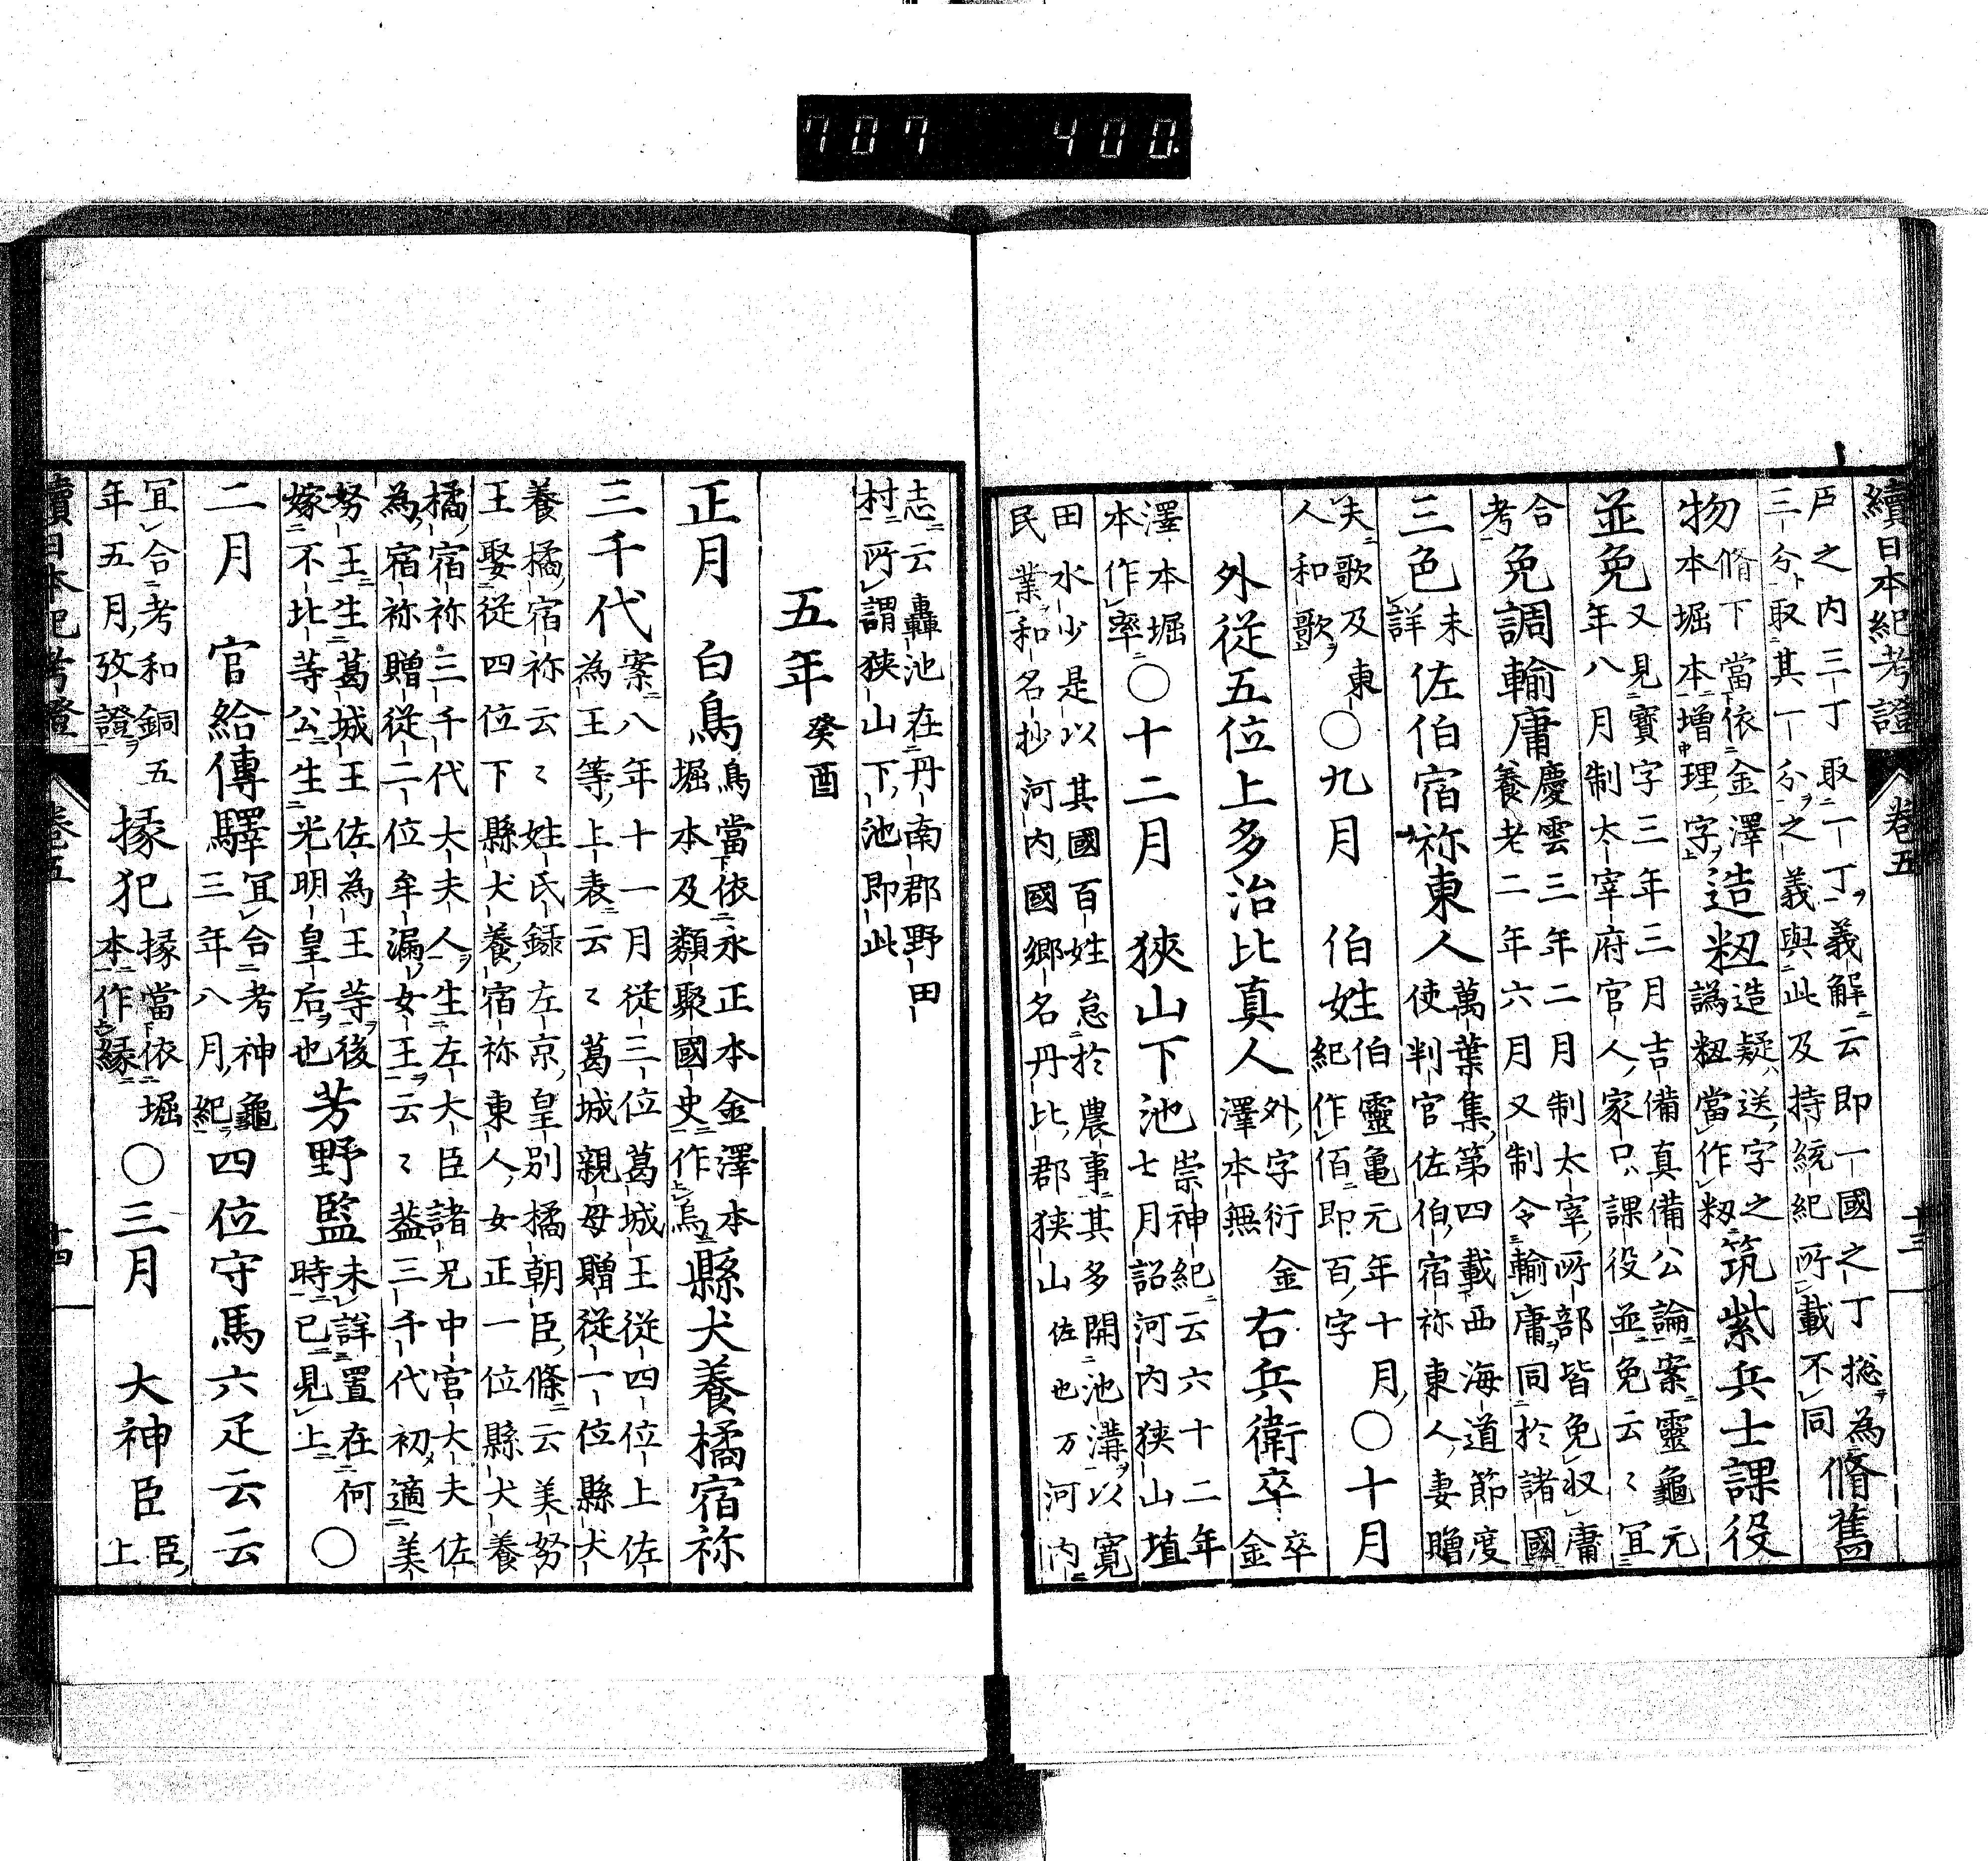 707 400.
續日本紀考證 卷五 十三
戸之内三丁取二丁義解云即一國之丁揔為
三分取其一分之義與此及持統紀所載不同 脩舊
物 脩下當依金澤本堀本増理字 造籾 造疑送字之譌籾當作籾 筑紫兵士課役
並免 又見寶字三年三月吉備真備公論案靈龜元年八月制太宰府官人家口課役並免云〻宜
合考 免調輸庸 慶雲三年二月制太宰所部皆免収庸養老二年六月又制令輸庸同於諸國
三色 未詳 佐伯宿祢東人 萬葉集第四載西海道節度使判官佐伯宿祢東人妻贈
夫歌及東人和歌 ○九月 伯姓 伯靈亀元年十月紀作佰即百字 ○十月
外從五位上多治比真人 外字衍金澤本無 右兵衛卒 卒金
澤本堀本作率 ○十二月 狹山下池 崇神紀云六十二年七月詔河内狹山埴
田水少是以其國百姓怠於農事其多開池溝以寛
民業和名抄河内國郷名丹比郡狹山佐也万河内
志云轟池在丹南郡野田
村所謂狹山下池即此
五年 癸酉
正月 白鳥 鳥當依永正本金澤本堀本及類聚國史作烏 縣犬養橘宿祢
三千代 案八年十一月從三位葛城王從四位上佐為王等上表云〻葛城親母贈從一位縣犬
養橘宿祢云〻姓氏録左京皇別橘朝臣條云美努
王娶從四位下縣犬養宿祢東人女正一位縣犬養
橘宿祢三千代大夫人生左大臣諸兄中宮大夫佐
為宿祢贈從二位牟漏女王云〻葢三千代初適美
努王生葛城王佐為王等後
嫁不比等公生光明皇后也 芳野監 未詳置在何時已見上 ○
二月 官給傳驛 冝合考神龜三年八月紀 四位守馬六疋云云
冝合考和銅五年五月攷證 掾犯 掾當依堀本作縁 ○三月 大神臣 臣上
續日本紀考證 卷五 十四